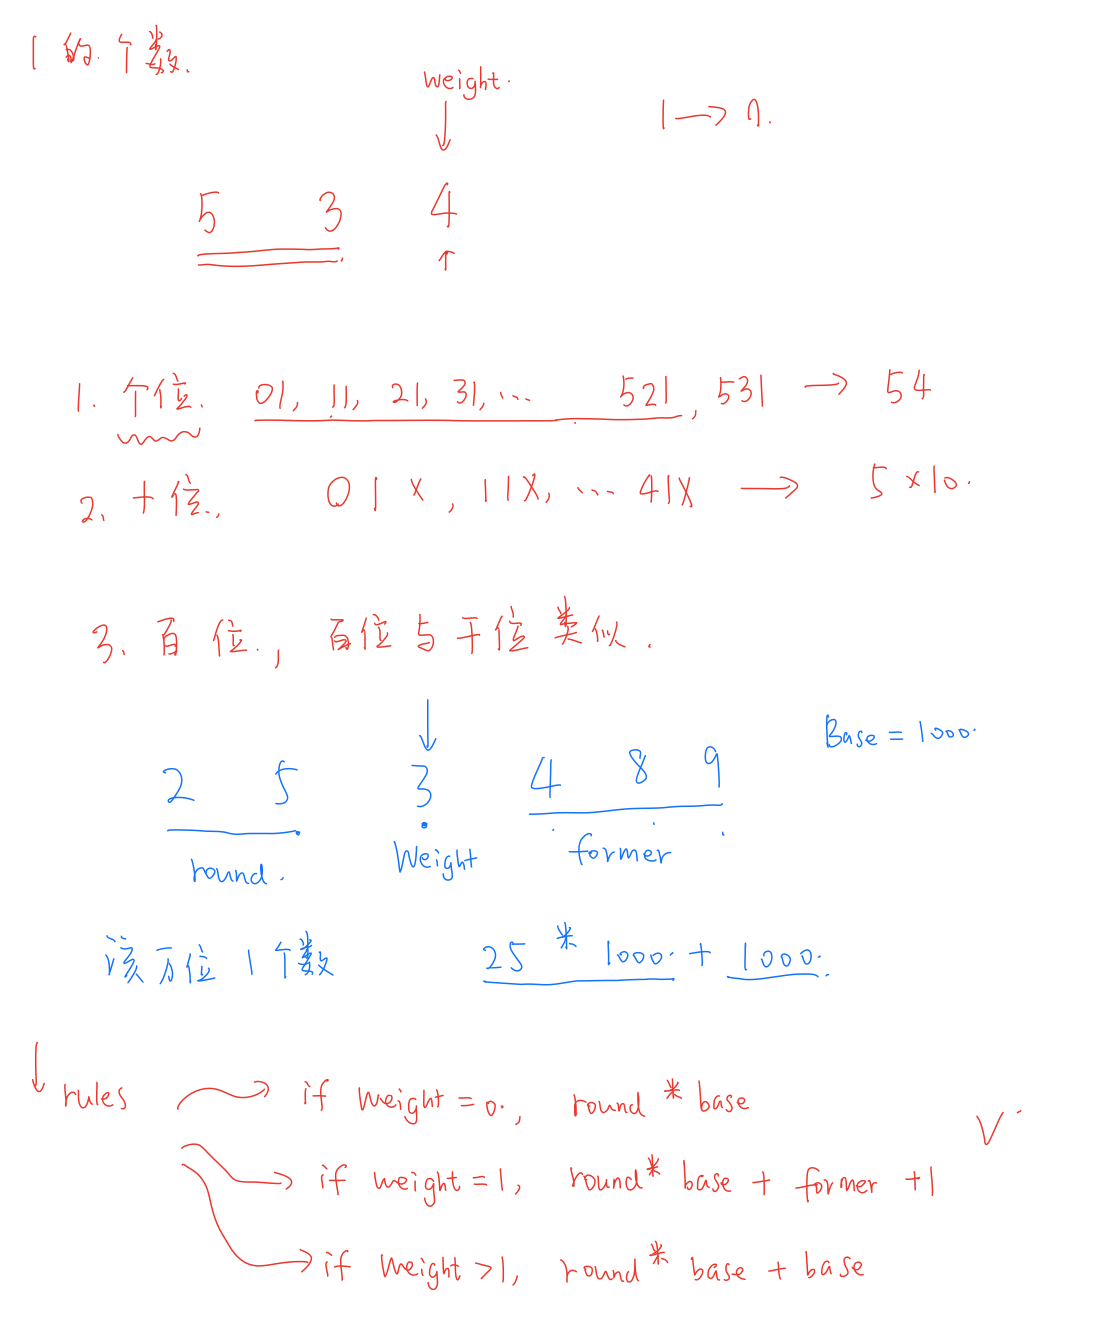 1的个数.
weight.
1 → n.
5 3 4
1. 个位. 01, 11, 21, 31, ... 521, 531 → 54
2、十位., 01x, 11x, ... 41x → 5×10.
3、百位., 百位与千位类似.
Base = 1000.
2 5 3 4 8 9
round. Weight former
该万位1个数 25 * 1000. + 1000.
rules if weight = 0., round * base
if weight = 1, round * base + former + 1
if weight > 1, round * base + base